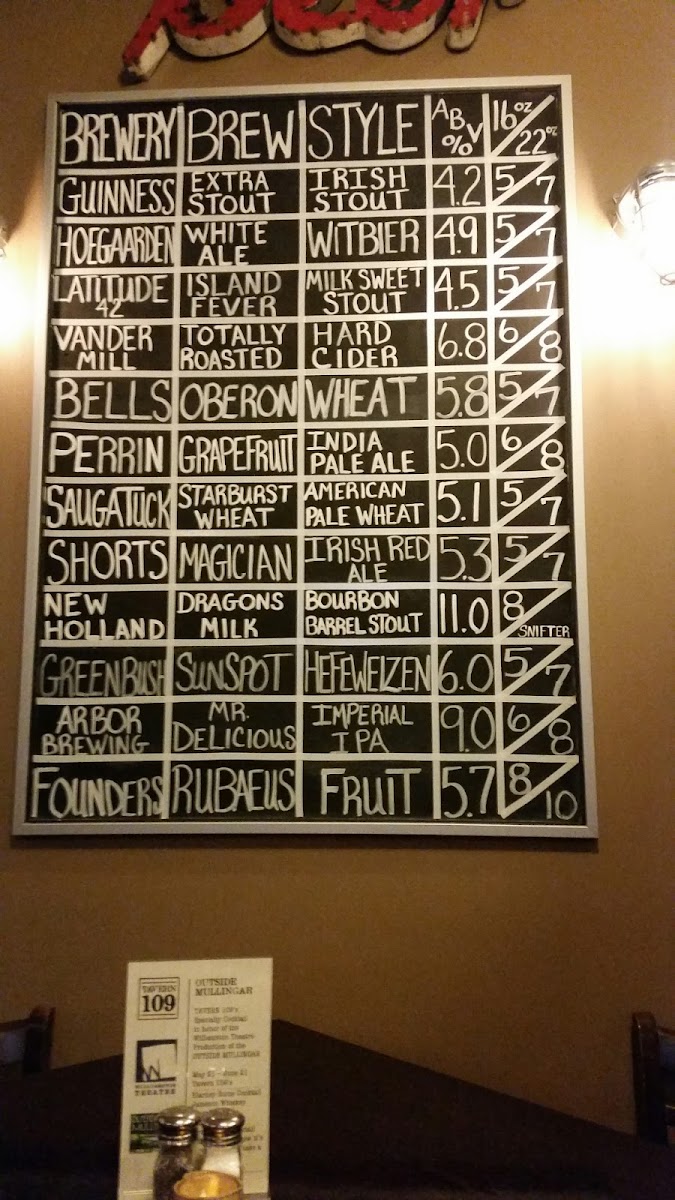 Beer
BREWERY BREW STYLE ABV% 16oz/22oz
GUINNESS EXTRA STOUT IRISH STOUT 4.2 5/7
HOEGAARDEN WHITE ALE WITBIER 4.9 5/7
LATITUDE 42 ISLAND FEVER MILK SWEET STOUT 4.5 5/7
VANDER MILL TOTALLY ROASTED HARD CIDER 6.8 6/8
BELLS OBERON WHEAT 5.8 5/7
PERRIN GRAPEFRUIT INDIA PALE ALE 5.0 6/8
SAUGATUCK STARBURST WHEAT AMERICAN PALE WHEAT 5.1 5/7
SHORTS MAGICIAN IRISH RED ALE 5.3 5/7
NEW HOLLAND DRAGONS MILK BOURBON BARREL STOUT 11.0 8/SNIFTER
GREENBUSH SUNSPOT HEFEWEIZEN 6.0 5/7
ARBOR BREWING MR. DELICIOUS IMPERIAL IPA 9.0 6/8
FOUNDERS RUBAEUS FRUIT 5.7 8/10
TAVERN
109
OUTSIDE
MULLINGAR
TAVERN 109's
Specialty Cocktail
in honor of the
Williamston Theatre
Production of the
OUTSIDE MULLINGAR
THEATRE
Tavern 109's
Jameson Whiskey